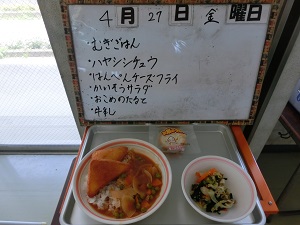 4月27日金曜日
むぎごはん
・ハヤシシチュウ
・はんぺんチーズフライ
・かいそうサラダ
・おこめのたると
・牛乳